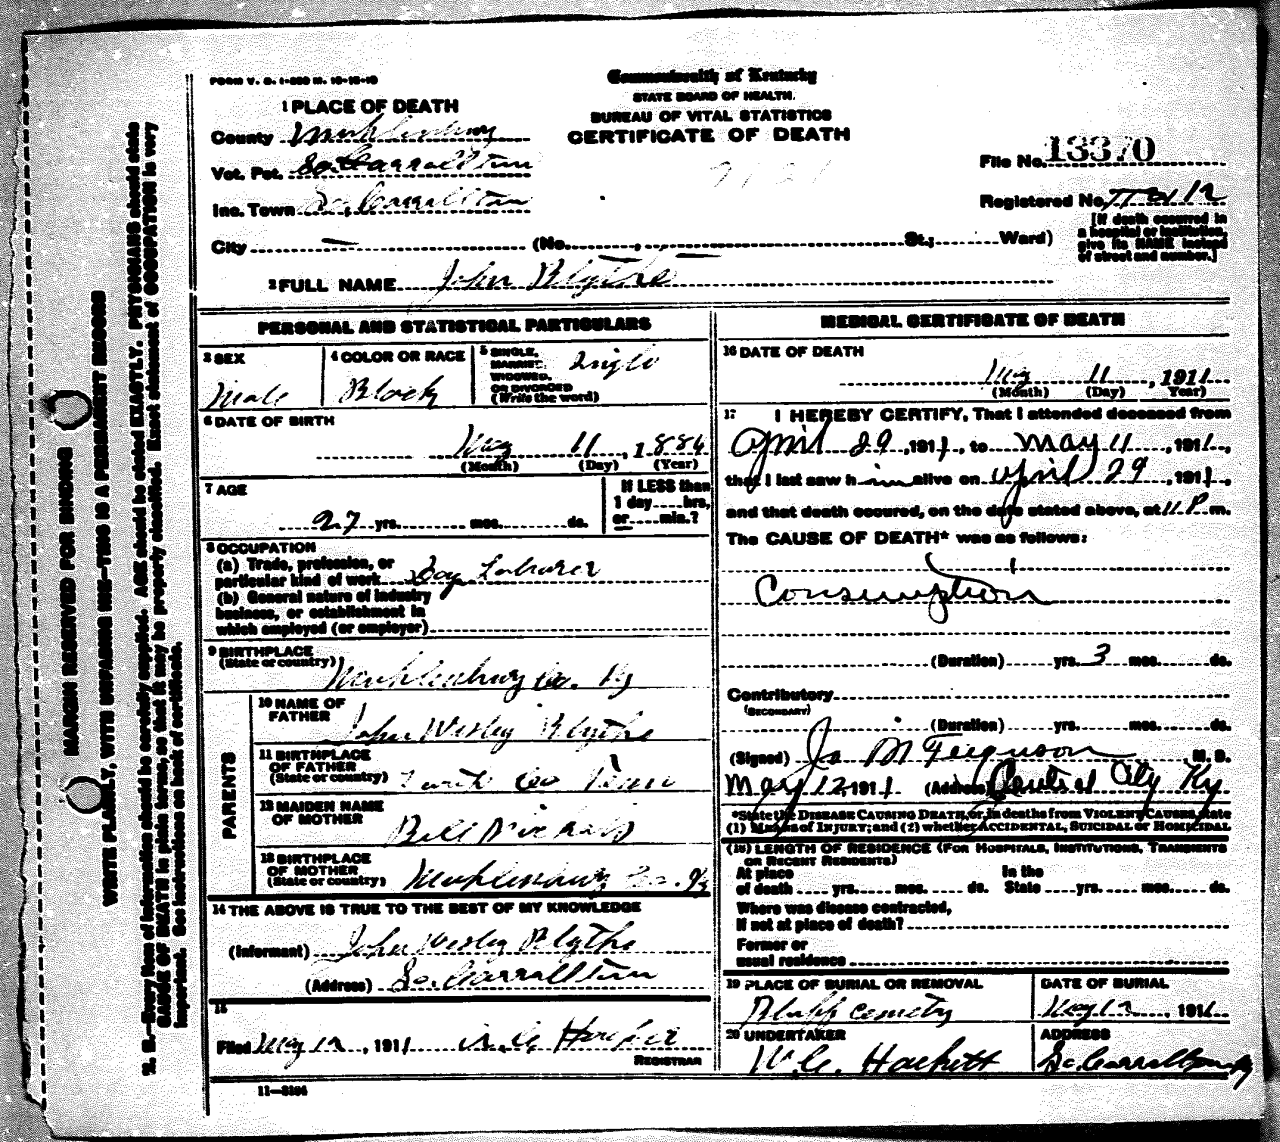 FORM V. S. 1-
Commonwealth of Kentucky
STATE BOARD OF HEALTH.
BUREAU OF VITAL STATISTICS
CERTIFICATE OF DEATH
1 PLACE OF DEATH
County Muhlenburg
Vot. Pct. So. Carrollton
Inc. Town So. Carrollton
City — (No. , St.; Ward)
File No. 13370
Registered No. 12
[If death occurred in
a hospital or institution,
give its NAME instead
of street and number.]
2 FULL NAME John Blythe
PERSONAL AND STATISTICAL PARTICULARS
3 SEX
Male
4 COLOR OR RACE
Black
5 SINGLE,
MARRIED,
WIDOWED,
OR DIVORCED
(Write the word)
Single
6 DATE OF BIRTH
May 11, 1884
(Month) (Day) (Year)
7 AGE
27 yrs. mos. ds.
If LESS than
1 day hrs.
or min.?
8 OCCUPATION
(a) Trade, profession, or
particular kind of work Day Laborer
(b) General nature of industry
business, or establishment in
which employed (or employer)
9 BIRTHPLACE
(State or country) Muhlenburg Co. Ky
PARENTS
10 NAME OF
FATHER John Wesley Blythe
11 BIRTHPLACE
OF FATHER
(State or country) Co Tenn
12 MAIDEN NAME
OF MOTHER Bell
13 BIRTHPLACE
OF MOTHER
(State or country) Muhlenburg Co. Ky
14 THE ABOVE IS TRUE TO THE BEST OF MY KNOWLEDGE
(Informant) John Wesley Blythe
(Address) So. Carrollton
15
Filed May 12, 1911
REGISTRAR
11—
MEDICAL CERTIFICATE OF DEATH
16 DATE OF DEATH
May 11, 1911
(Month) (Day) (Year)
17 I HEREBY CERTIFY, That I attended deceased from
April 29, 1911, to May 11, 1911,
that I last saw him alive on April 29, 1911,
and that death occured, on the date stated above, at 11 P. m.
The CAUSE OF DEATH* was as follows:
Consumption
(Duration) yrs. 3 mos. ds.
Contributory
(SECONDARY)
(Duration) yrs. mos. ds.
(Signed) Jo M Ferguson M. D.
May 12, 1911 (Address) Central City Ky
*State the DISEASE CAUSING DEATH, or, in deaths from VIOLENT CAUSES, state
(1) MEANS OF INJURY; and (2) whether ACCIDENTAL, SUICIDAL or HOMICIDAL
(18) LENGTH OF RESIDENCE (FOR HOSPITALS, INSTITUTIONS, TRANSIENTS
OR RECENT RESIDENTS)
At place
of death yrs. mos. ds.
In the
State yrs. mos. ds.
Where was disease contracted,
if not at place of death?
Former or
usual residence
19 PLACE OF BURIAL OR REMOVAL
Bluff cemetry
DATE OF BURIAL
May 12, 1911
20 UNDERTAKER
W. C. Hackett
ADDRESS
So. Carrollton Ky
MARGIN RESERVED FOR BINDING
WRITE PLAINLY, WITH UNFADING INK—THIS IS A PERMANENT RECORD
N. B.—Every item of information should be carefully supplied. AGE should be stated EXACTLY. PHYSICIANS should state
CAUSE OF DEATH in plain terms, so that it may be properly classified. Exact statement of OCCUPATION is very
important. See instructions on back of certificate.